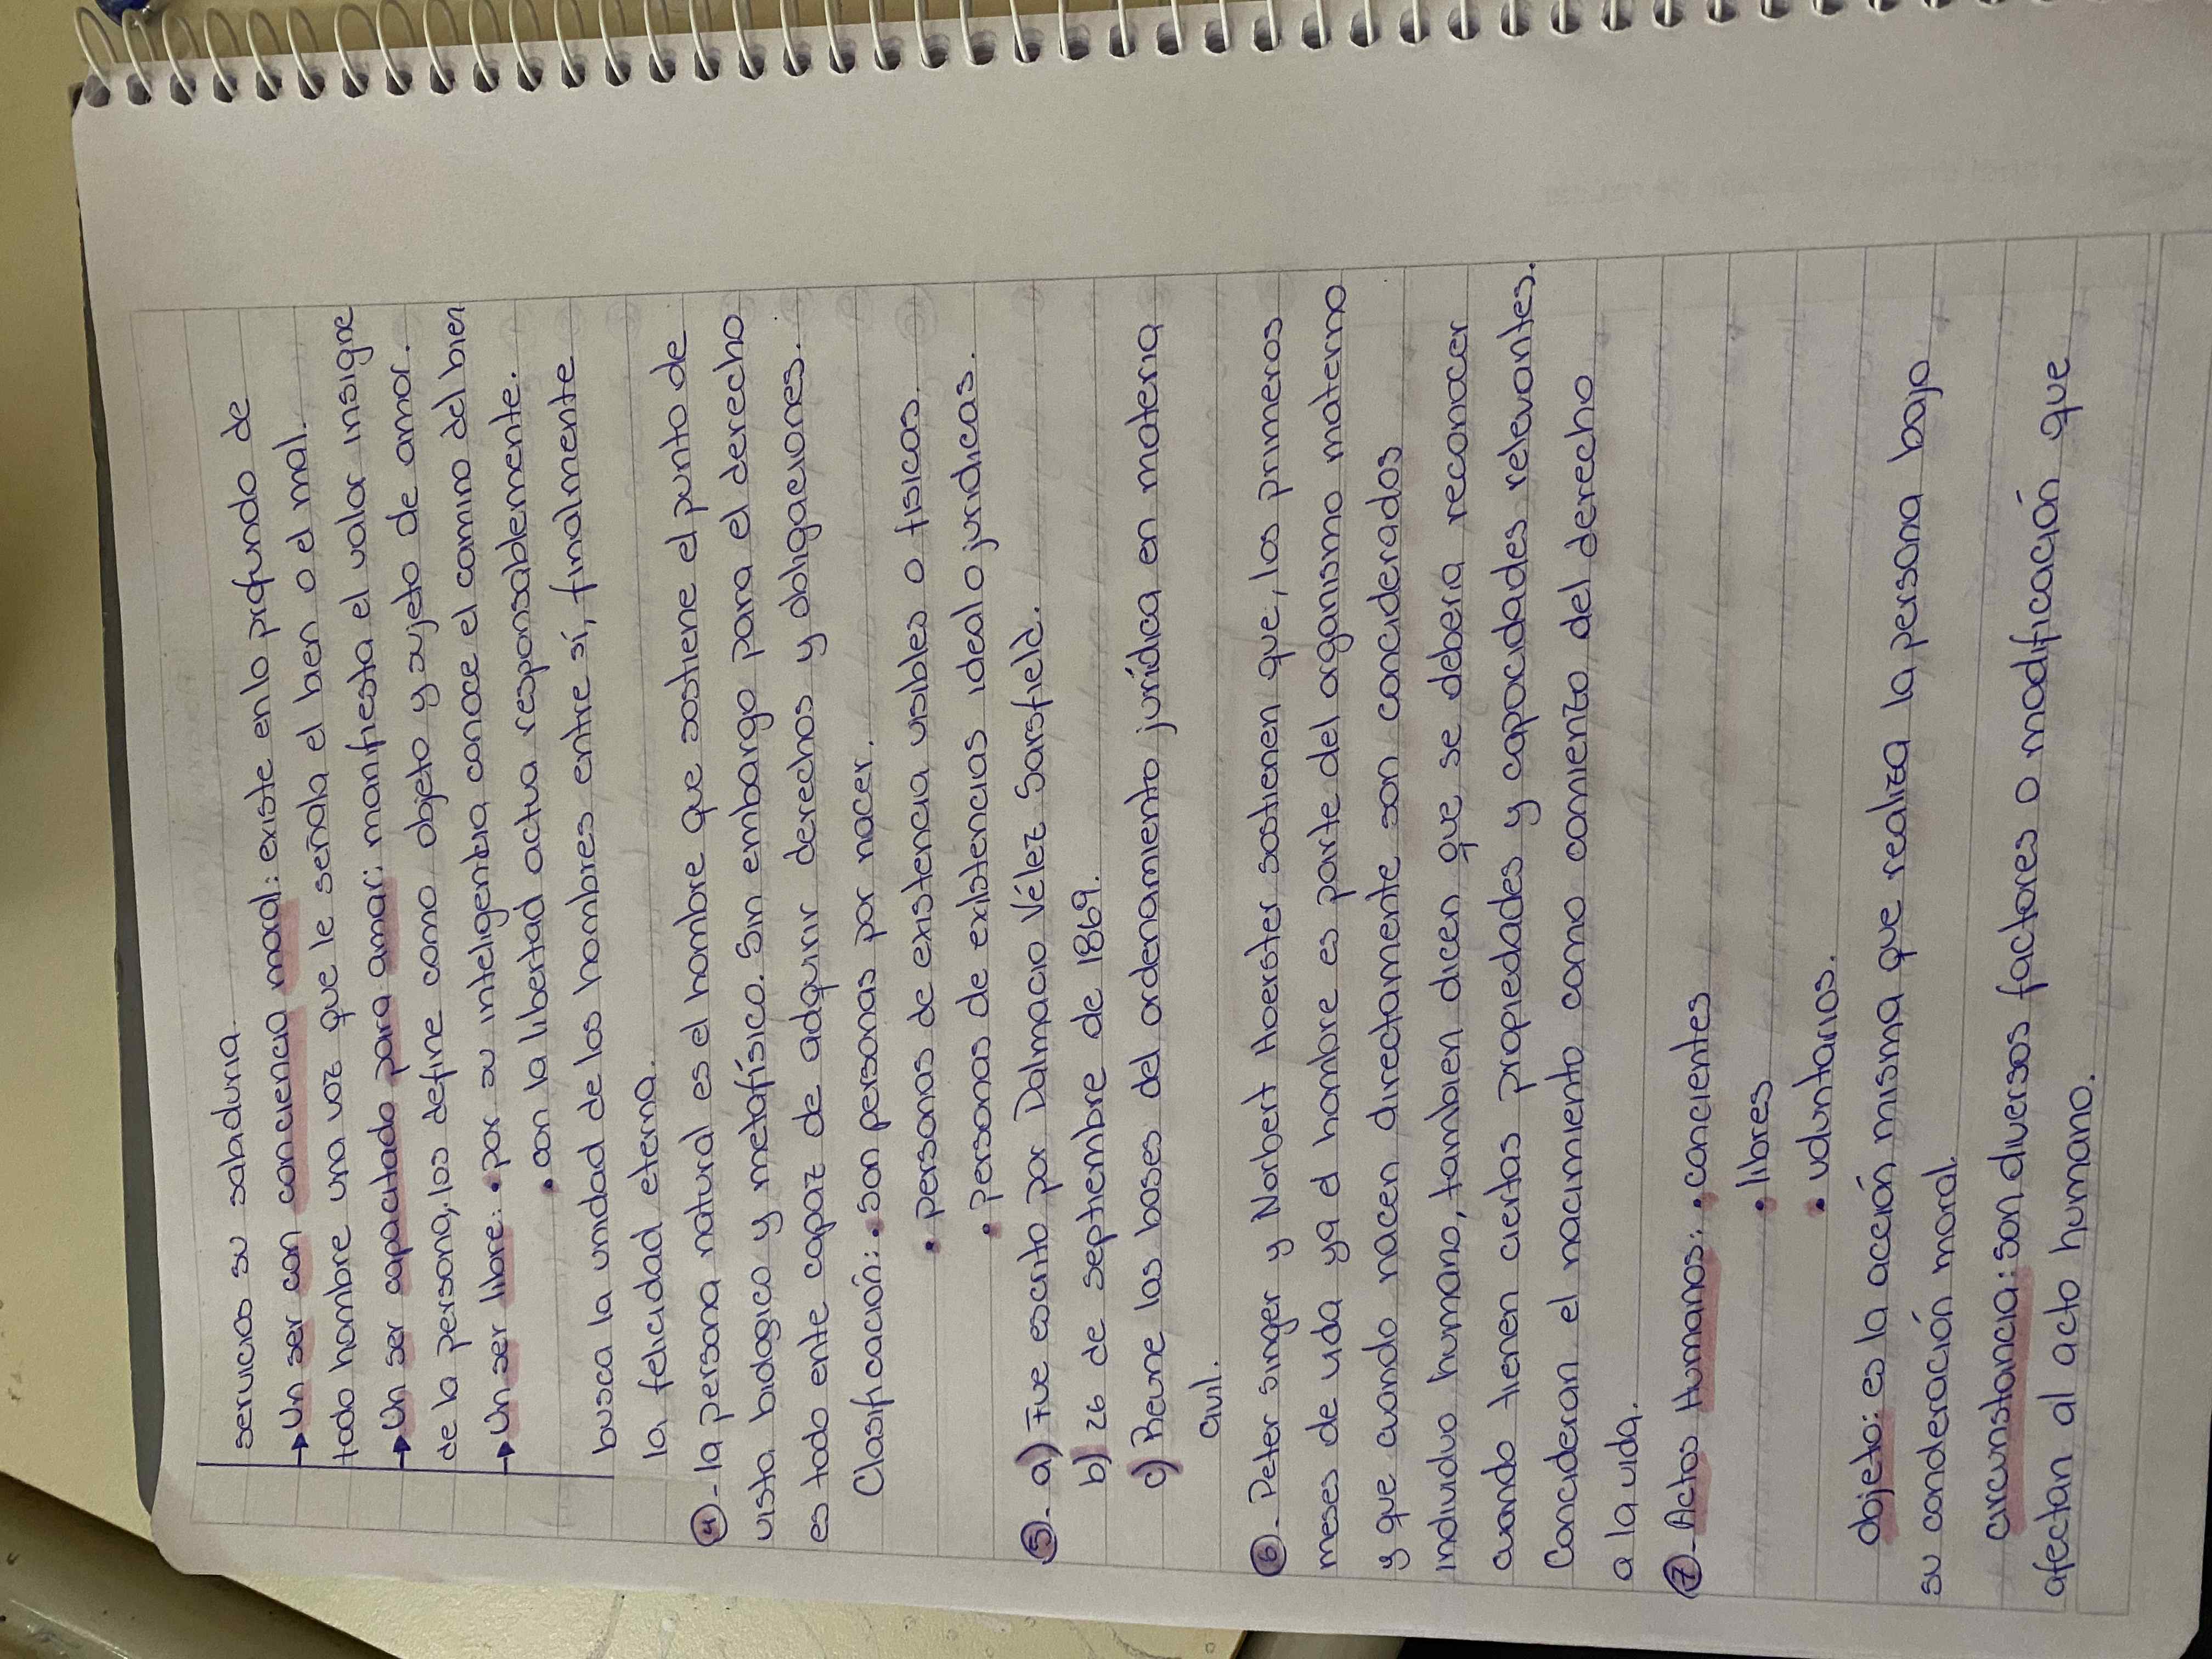 servicios su sabiduria
→ Un ser con conciencia moral: existe en lo profundo de
todo hombre una voz que le señala el bien o el mal.
→ Un ser capacitado para amar: manifiesta el valor insigne
de la persona, los define como objeto y sujeto de amor.
→ Un ser libre: • por su inteligencia conoce el camino del bien
• con la libertad actua responsablemente.
busca la unidad de los hombres entre sí, finalmente
la felicidad eterna.
4- la persona natural es el hombre que sostiene el punto de
vista biologico y metafísico. Sin embargo para el derecho
es todo ente capaz de adquirir derechos y obligaciones.
Clasificación: • son personas por nacer.
• personas de existencia visibles o fisicas.
• personas de existencias ideal o juridicas.
5- a) Fue escrito por Dalmacio Vélez Sarsfield.
b) 26 de septiembre de 1869.
c) Reune las bases del ordenamiento jurídica en materia
civil.
6- Peter singer y Norbert Hoerster sostienen que, los primeros
meses de vida ya el hombre es parte del organismo materno
y que cuando nacen directamente son conciderados
individuo humano, tambien dicen que se deberia reconocer
cuando tienen ciertas propiedades y capacidades relevantes.
Concideran el nacimiento como comienzo del derecho
a la vida.
7- Actos Humanos: • concientes
• libres
• voluntarios.
objeto: es la acción misma que realiza la persona bajo
su conderación moral.
circunstancia: son diversos factores o modificación que
afectan al acto humano.